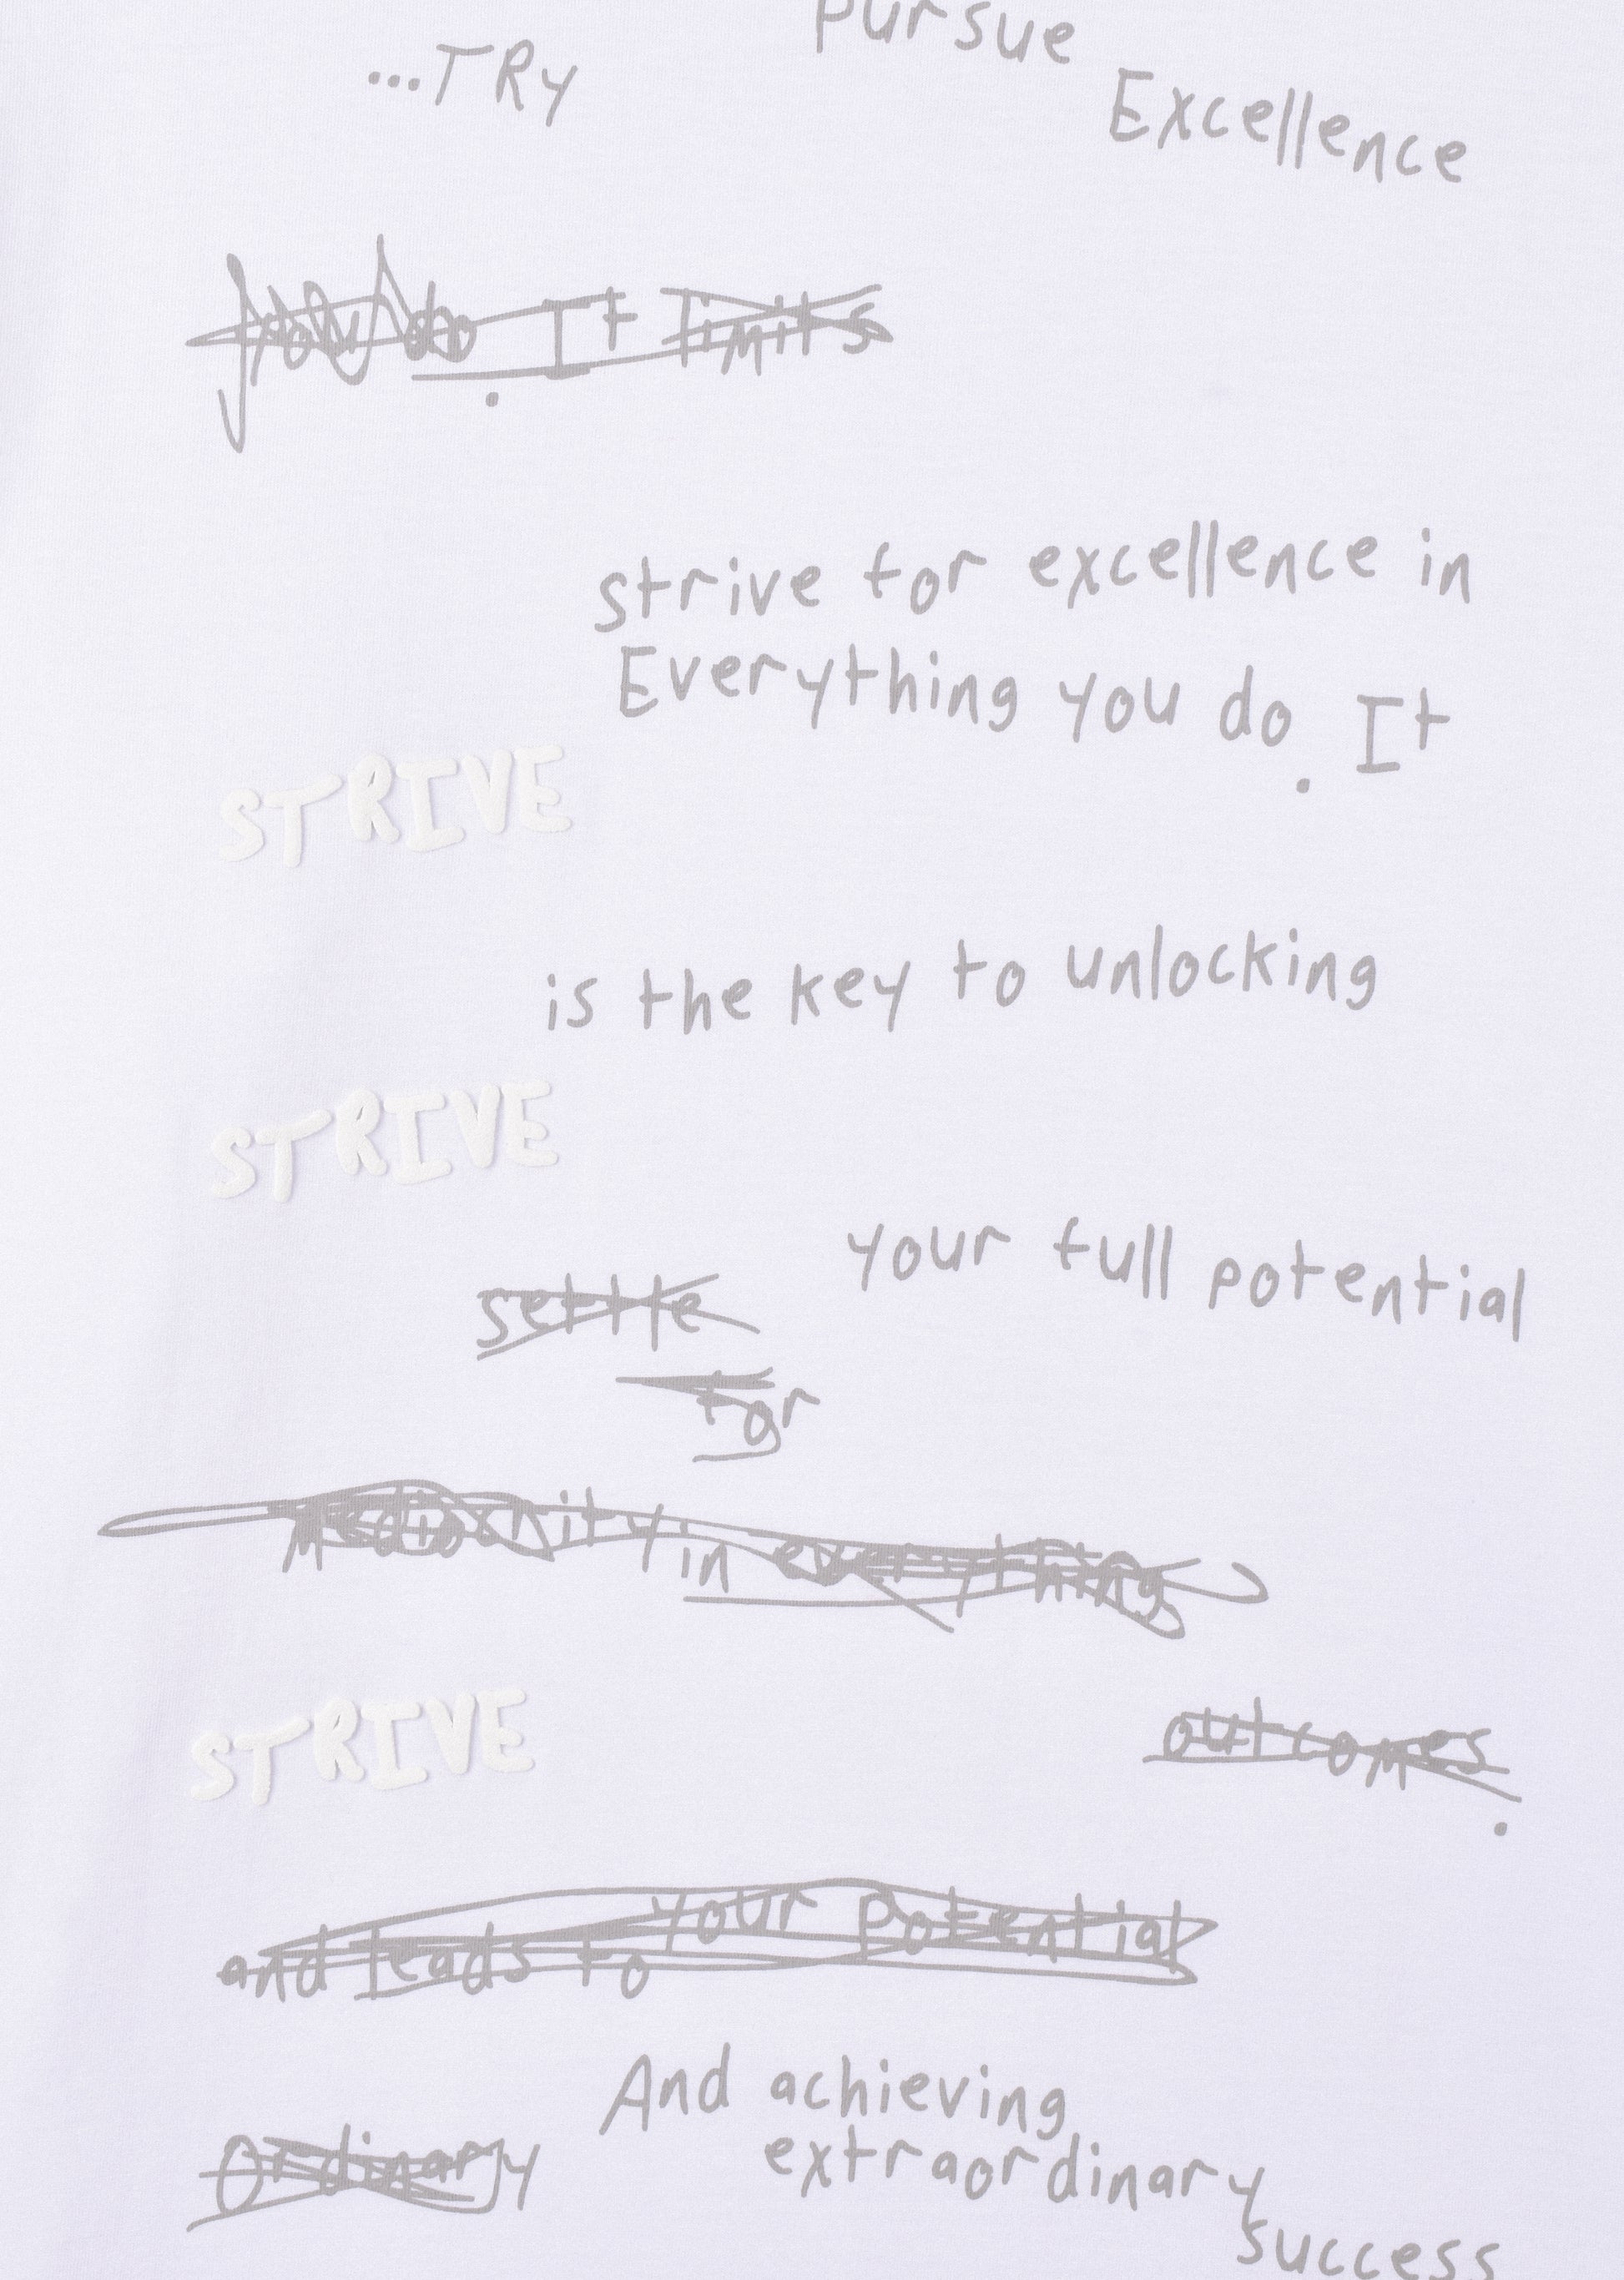 Pursue
...TRY
Excellence
you do. It limits
strive for excellence in
Everything you do. It
STRIVE
is the key to unlocking
STRIVE
your full potential
settle
for
Mediocrity in everything
STRIVE
outcomes.
and leads to your potential
And achieving
ordinary
extraordinary
success